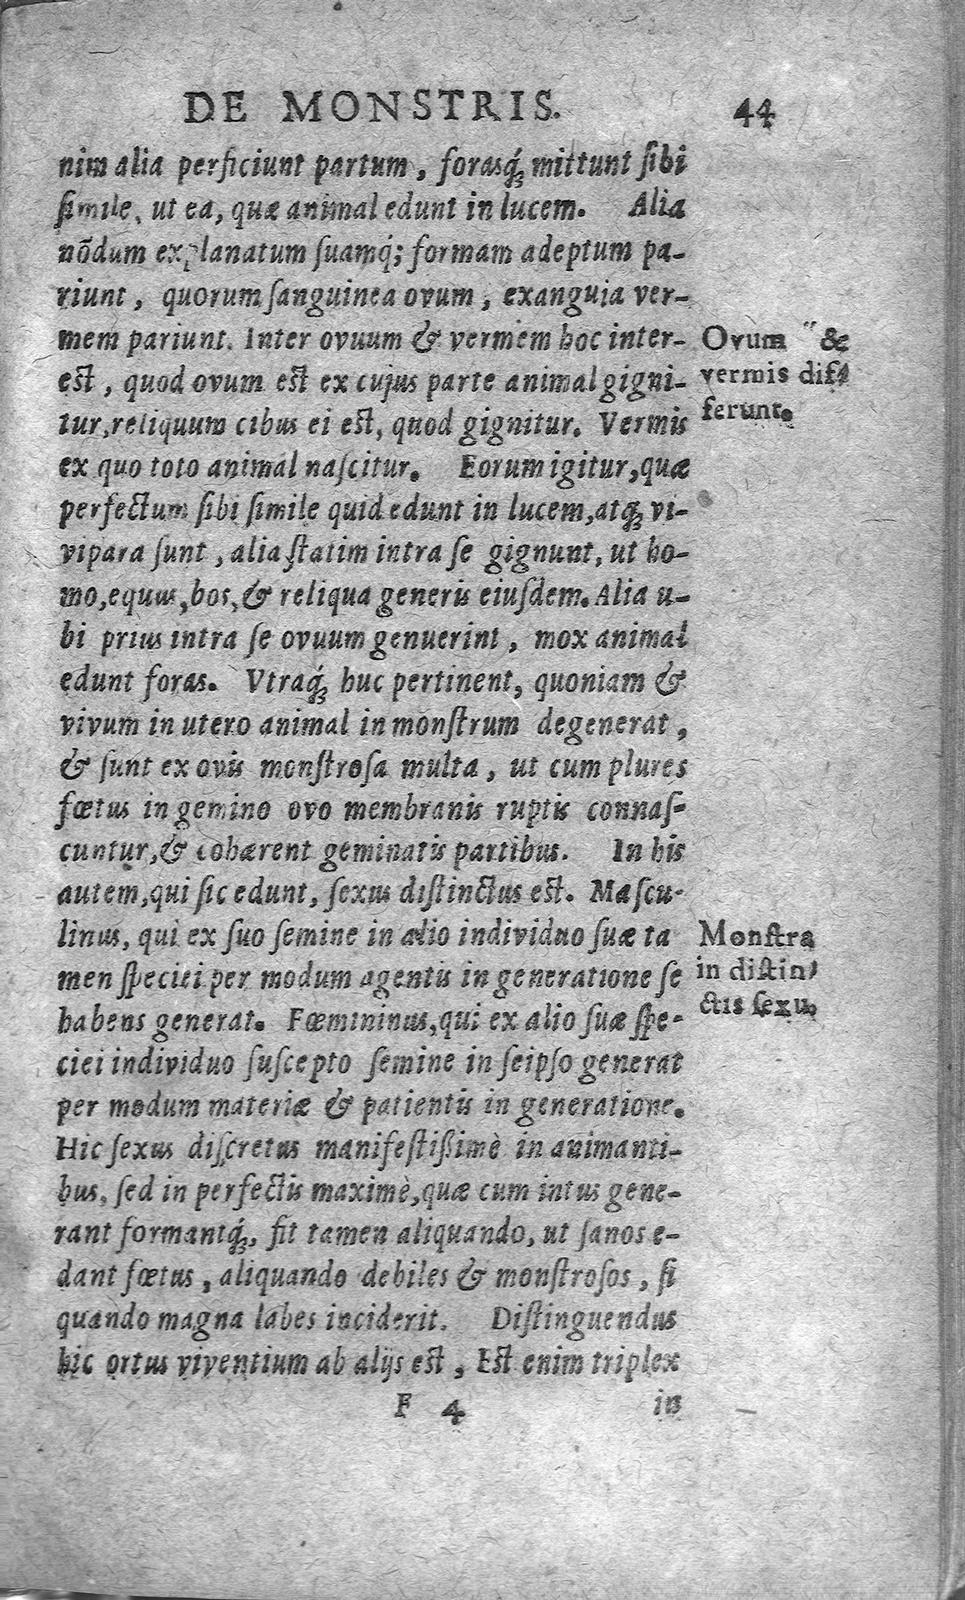 DE MONSTRIS. 44
nim alia perficiunt partum, forasq́ꝫ mittunt ſibi
ſimile, ut ea, quæ animal edunt in lucem. Alia
nõdum explanatum ſuamq́; formam adeptum pa-
riunt, quorum ſanguinea ovum, exanguia ver-
mem pariunt. Inter ovuum & vermem hoc inter-
eſt, quod ovum eſt ex cujus parte animal gigni-
tur, reliquum cibus ei eſt, quod gignitur. Vermis
ex quo toto animal naſcitur. Eorum igitur, quæ
perfectum ſibi ſimile quid edunt in lucem, atqꝫ vi-
vipara ſunt, alia ſtatim intra ſe gignunt, ut ho-
mo, equus, bos, & reliqua generis eiuſdem. Alia u-
bi prius intra ſe ovuum genuerint, mox animal
edunt foras. Vtraq́ꝫ huc pertinent, quoniam &
vivum in utero animal in monſtrum degenerat,
& ſunt ex ovis monſtroſa multa, ut cum plures
fœtus in gemino ovo membranis ruptis connaſ-
cuntur, & cohærent geminatis partibus. In his
autem, qui ſic edunt, ſexus diſtinctus eſt. Maſcu-
linus, qui ex ſuo ſemine in alio individuo ſuæ ta
men ſpeciei per modum agentis in generatione ſe
habens generat. Fœmininus, qui ex alio ſuæ ſpe-
ciei individuo ſuſcepto ſemine in ſeipſo generat
per modum materiæ & patientis in generatione.
Hic ſexus diſcretus manifeſtißimè in animanti-
bus, ſed in perfectis maximè, quæ cum intus gene-
rant formantq́ꝫ, fit tamen aliquando, ut ſanos e-
dant fœtus, aliquando debiles & monſtroſos, ſi
quando magna labes inciderit. Diſtinguendus
hic ortus viventium ab alijs eſt, Eſt enim triplex
F 4 in
Ovum &
vermis dif-
ferunt.
Monſtra
in diſtin-
ctis ſexu.